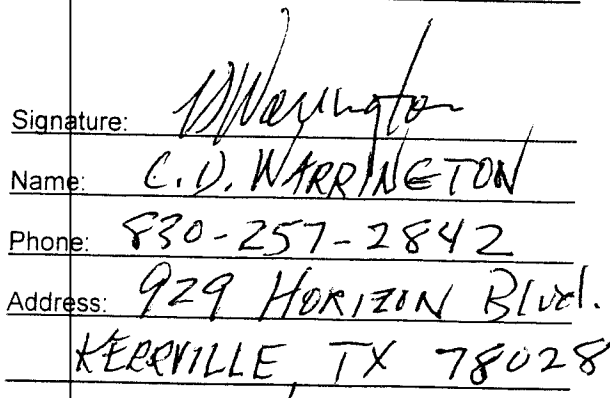 Signature: CDWarrington
Name: C.D. WARRINGTON
Phone: 830-257-2842
Address: 929 HORIZON Blvd.
KERRVILLE, TX 78028